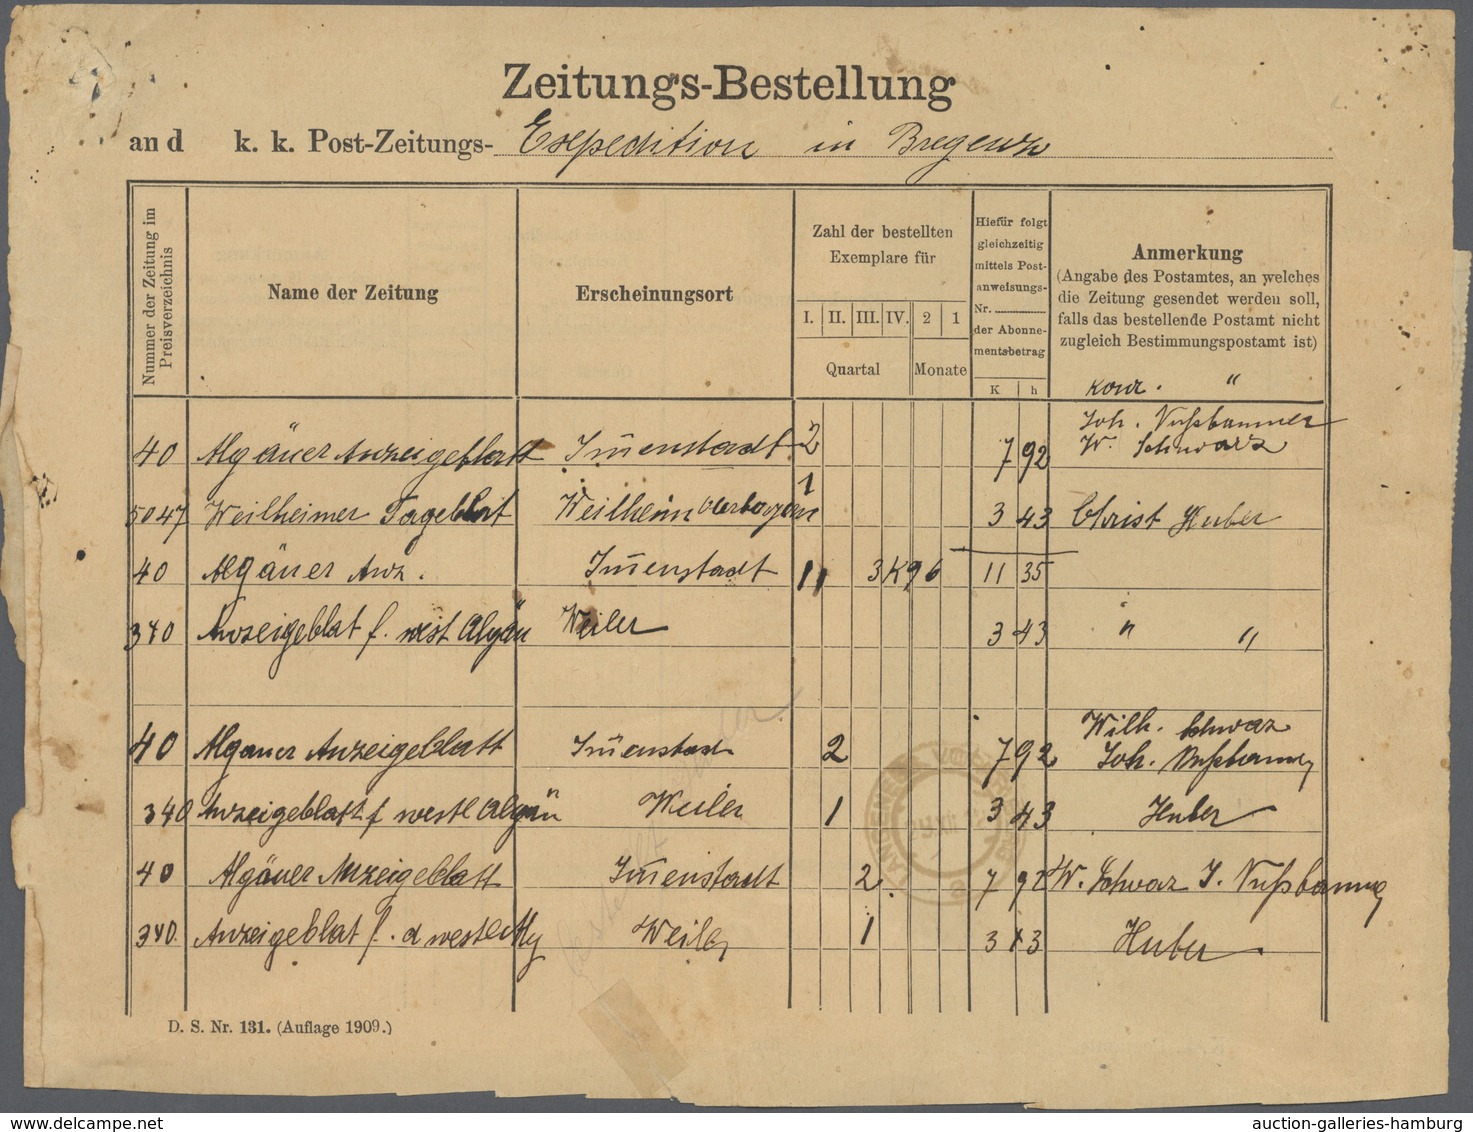 Zeitungs-Bestellung
an d k. k. Post-Zeitungs- Expedition in Bregenz
Nummer der Zeitung im Preisverzeichnis
Name der Zeitung
Erscheinungsort
Zahl der bestellten
Exemplare für
I. II. III. IV. 2 1
Quartal Monate
Hiefür folgt
gleichzeitig
mittels Post-
anweisungs-
Nr.
der Abonne-
mentsbetrag
K h
Anmerkung
(Angabe des Postamtes, an welches
die Zeitung gesendet werden soll,
falls das bestellende Postamt nicht
zugleich Bestimmungspostamt ist)
"
Joh. Nußbaumer
40 Algäuer Anzeigeblatt Im̅enstadt 2 7 92 W. Schwarz
5047 Weilheimer Tageblat Weilheim 1 3 43 Christ Huber
40 Algäuer Anz. Im̅enstadt 3 K 96 11 35
340 Anzeigeblat f. west Algäu Weiler 3 43 " "
Wilh. Schwaz
40 Algäuer Anzeigeblatt Im̅enstadt 2 7 92 Joh. Nußbaumer
340 Anzeigeblatt f westl Algäu Weiler 1 3 43 Huber
40 Algäuer Anzeigeblatt Im̅enstadt 2 7 92 W. Schwaz J. Nußbaumer
340. Anzeigeblat f. d Weiler 1 3 43 Huber
bestellt
D. S. Nr. 131. (Auflage 1909.)
auction-galleries-hamburg.com